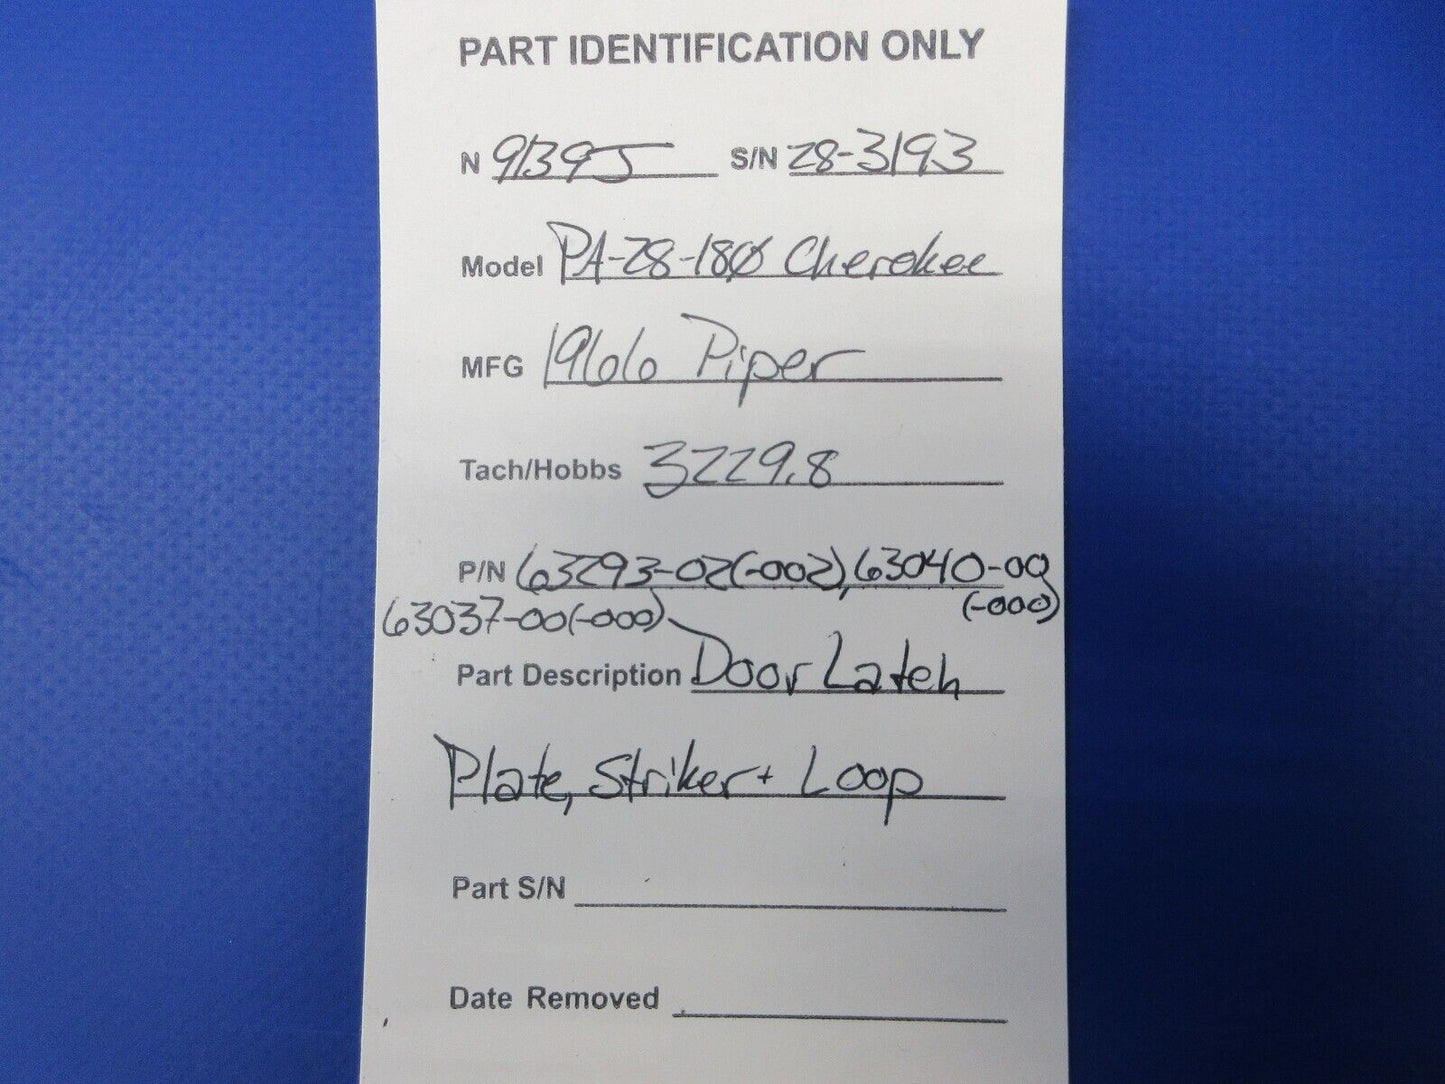 PART IDENTIFICATION ONLY
N 9139J S/N 28-3193
Model PA-28-180 Cherokee
MFG 1966 Piper
Tach/Hobbs 3229.8
P/N 63293-02(-002), 63040-00
63037-00(-000) (-000)
Part Description Door Latch
Plate, Striker + Loop
Part S/N
Date Removed